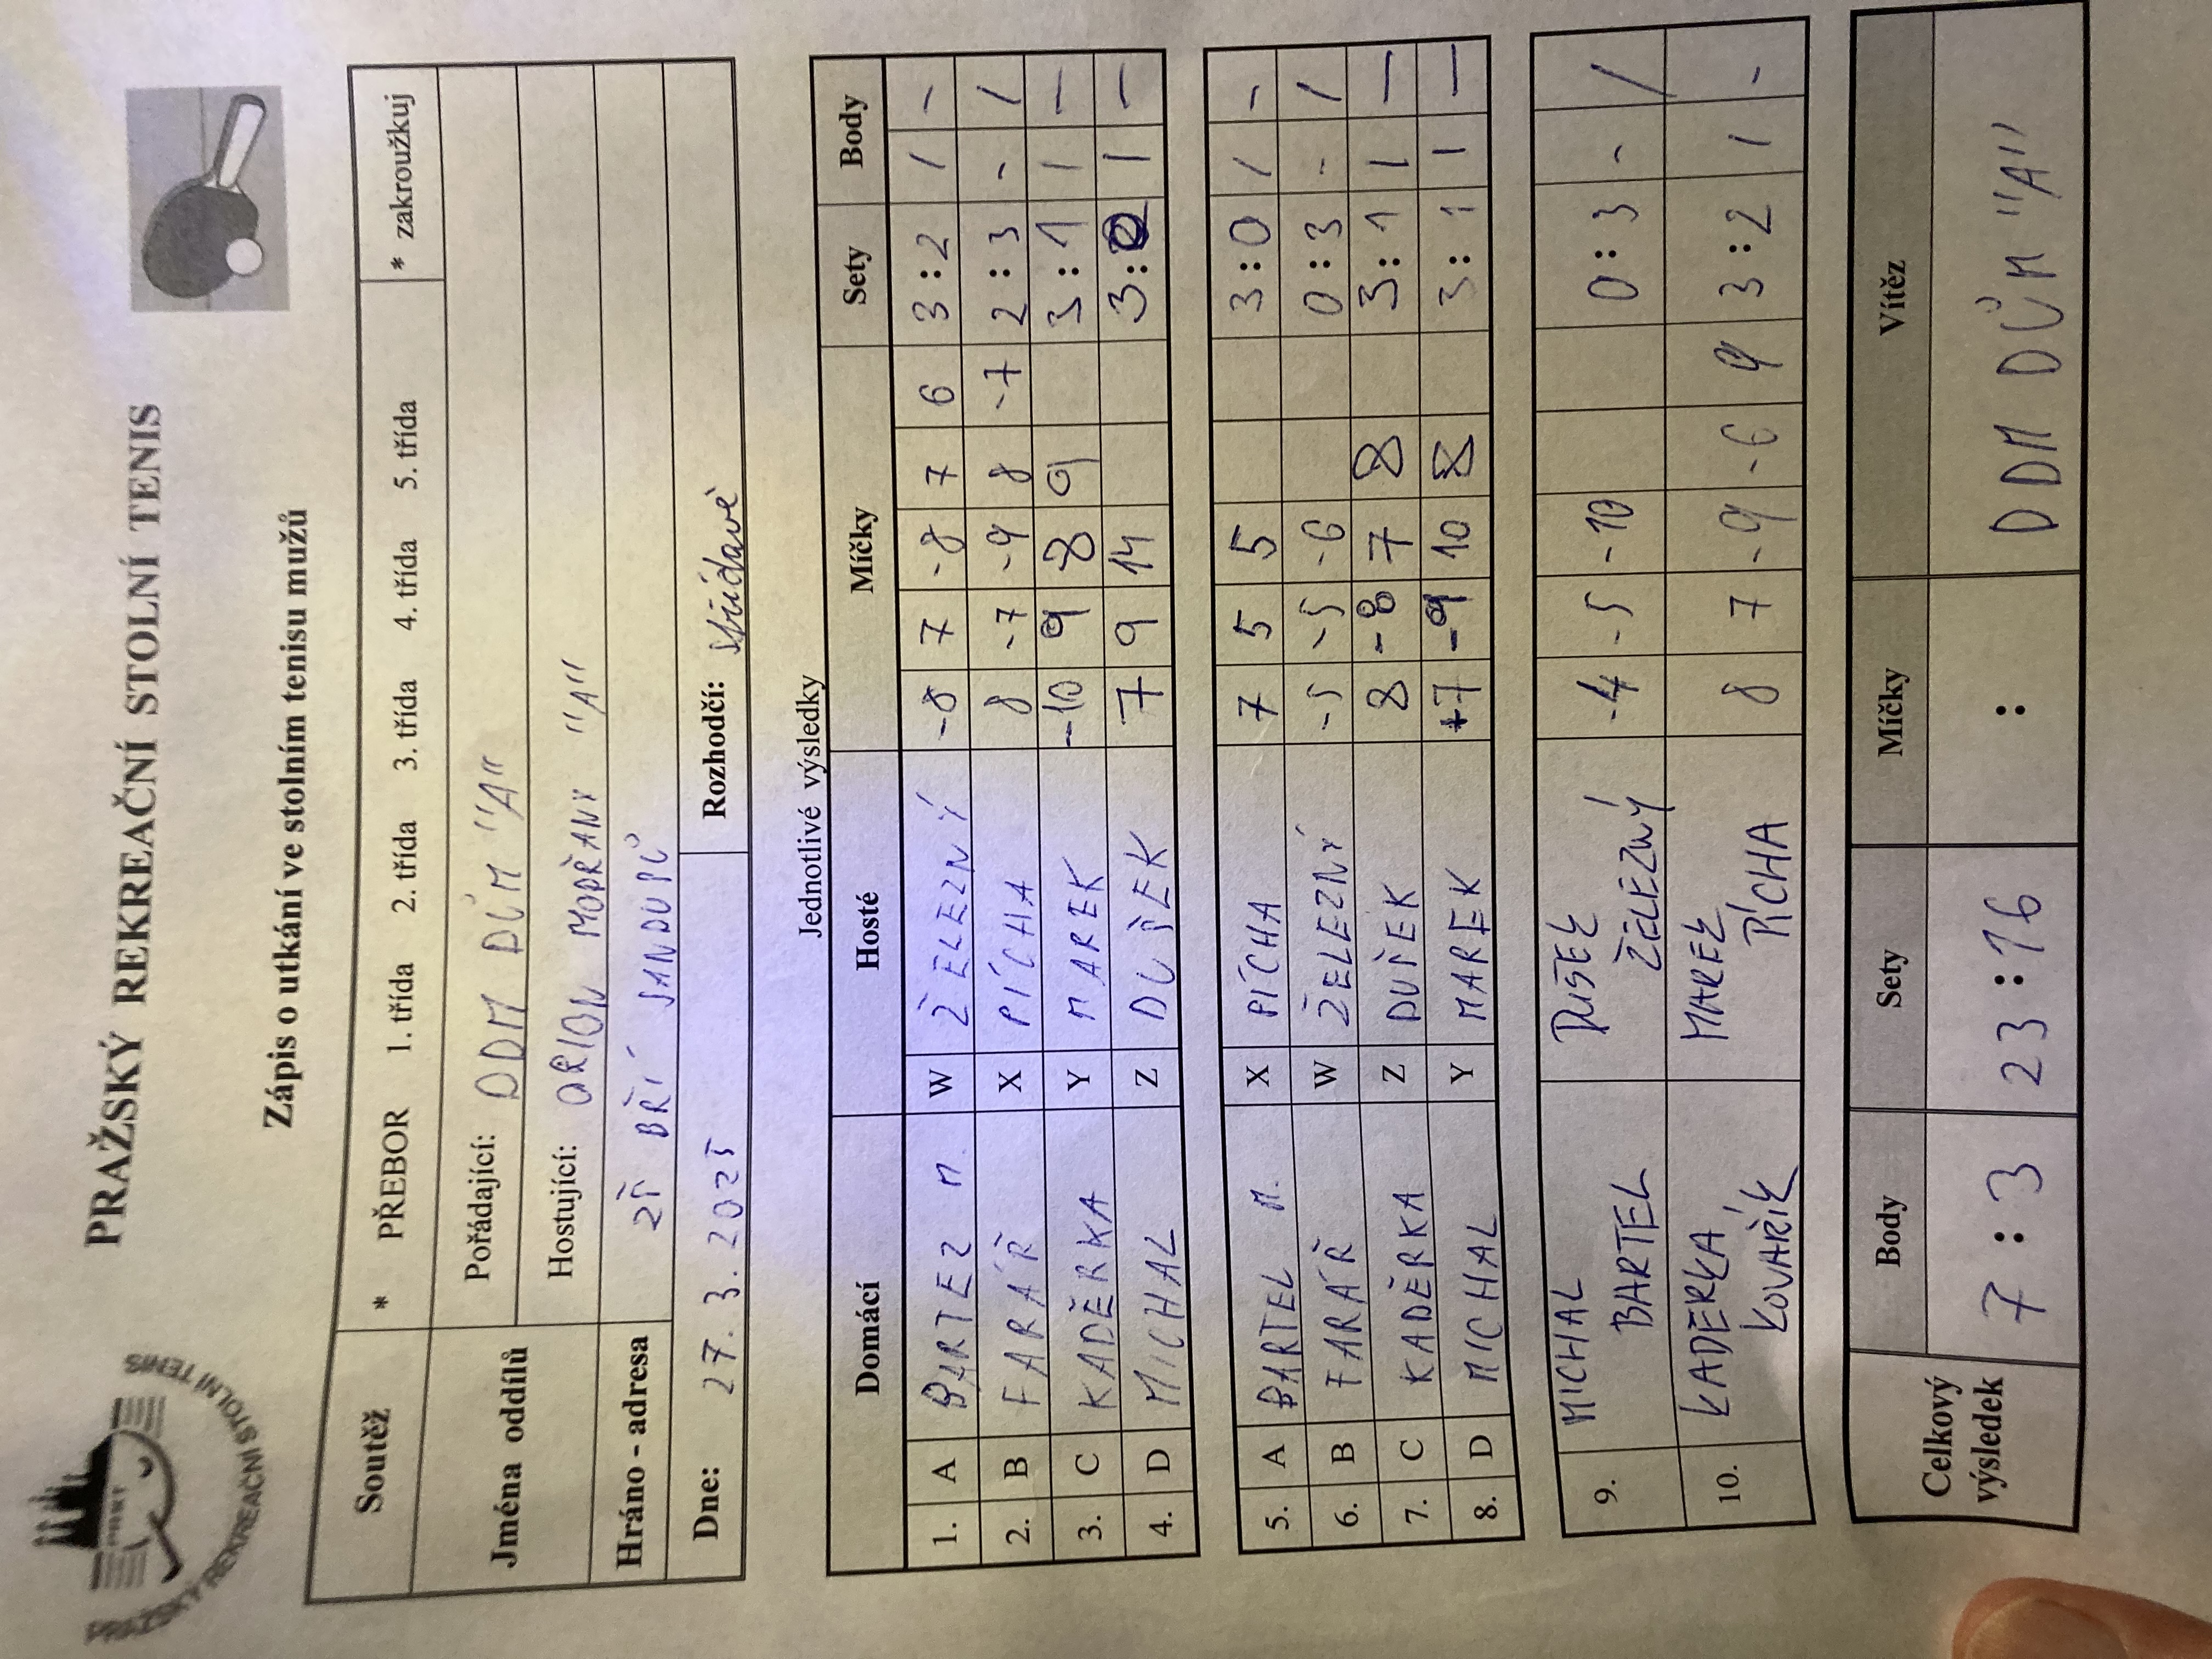 PRAŽSKÝ REKREAČNÍ STOLNÍ TENIS
PRAŽSKÝ REKREAČNÍ STOLNÍ TENIS
Zápis o utkání ve stolním tenisu mužů
Soutěž * PŘEBOR 1. třída 2. třída 3. třída 4. třída 5. třída * zakroužkuj
Jména oddílů Pořádající: DDM DŮM "A"
Hostující: ORION MODŘANY "A"
Hráno - adresa ZŠ BŘÍ JANDUSŮ
Dne: 27. 3. 2025 Rozhodčí: střídavě
Jednotlivé výsledky
Domácí Hosté Míčky Sety Body
1. A BARTEL M. W ŽELEZNÝ -8 7 -8 7 6 3:2 1 -
2. B FARÁŘ X PÍCHA 8 -7 -9 8 -7 2:3 - 1
3. C KADĚRKA Y MAREK -10 9 8 9 3:1 1 -
4. D MICHAL Z DUŠEK 7 9 14 3:0 1 -
5. A BARTEL M. X PÍCHA 7 5 5 3:0 1 -
6. B FARÁŘ W ŽELEZNÝ -5 -5 -6 0:3 - 1
7. C KADĚRKA Z DUŠEK 8 -8 7 8 3:1 1 -
8. D MICHAL Y MAREK +7 -9 10 8 3:1 1 -
9. MICHAL BARTEL DUŠEK ŽELEZNÝ -4 -5 -10 0:3 - 1
10. KADĚRKA, KOVAŘÍK MAREK PÍCHA 8 7 -9 -6 9 3:2 1 -
Celkový výsledek Body Sety Míčky Vítěz
7 : 3 23 : 16 : DDM DŮM "A"